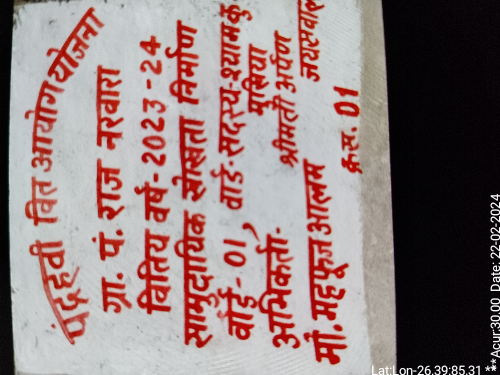 पंद्रहवी वित आयोग योजना
ग्रा. पं. राज नरवारा
वितिय वर्ष - 2023 - 24
सामुदायिक सोखता निर्माण
वार्ड - 01, वार्ड. सदस्य - श्यामकुं
अभिकर्ता. मुखिया
श्रीमती अर्पण
मो. महफूज आलम जयसवाल
क्र.स. 01
Lat:Lon-26,39:85,31
**Acur:30.00 Date: 22-02-2024